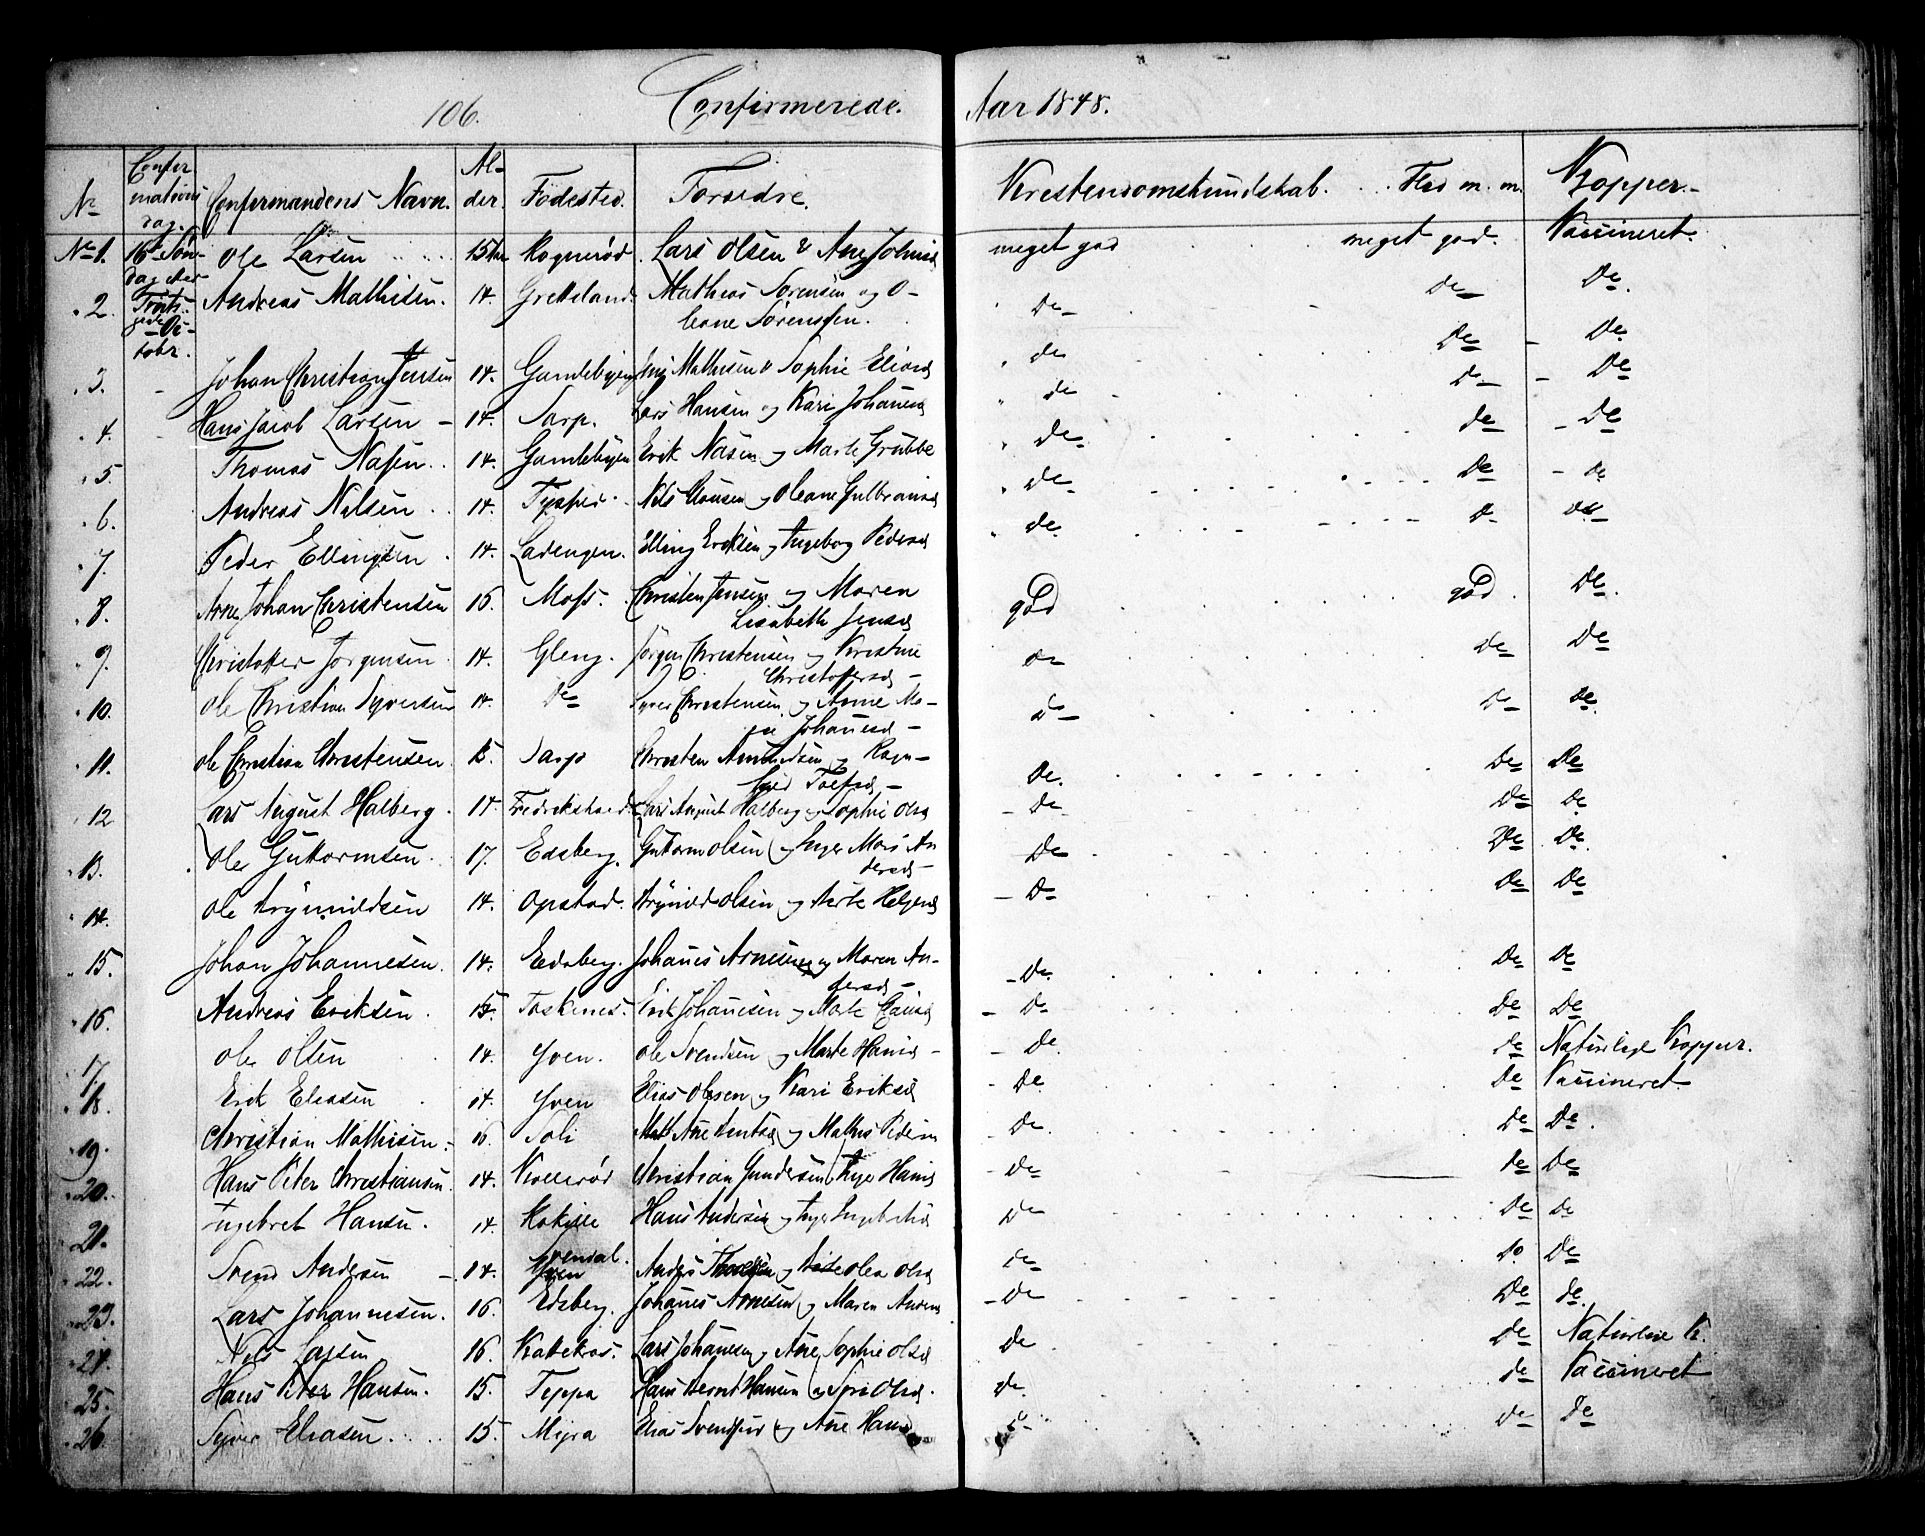 106. Confirmerede. Aar 1848.
Nr Confirmations dag. Confirmandens Navn. Alder. Födested. Forældre. Kristendomskundskab. Flid m. m. Kopper.
No 1. 16de Søndag efter Ole Larsen 15 Rognerød Lars Olsen & Ane Johnsd meget god meget god. Vaccineret.
2. Andreas Mathisen. 14. Gretteland Mathias Sørensen og O-
leane Sørensen. do do do.
October.
3. Johan Christian Jensen 14. Gamlebyen Jens Mathisen & Sophie Eliasd do do do
4. Hans Jacob Larsen 14. Sarp. Lars Hansen og Kari Johansd do do do
5. Thomas Nasen 14. Gamlebyen Erik Nasen og Marte Grubbe do do do
6. Andreas Nilsen 14. Nils og Oleane Gulbransd do do do
7. Peder Ellingsen 14. Ladengen. Elling Eriksen og Ingeborg Pedersd do do do
8. Arne Johan Christensen 15. Moss. Christen Jensen og Maren
Lisabeth Jensd god god. do.
9. Christoffer Jørgensen. 14. Gleng. Jørgen Christensen og Kirstine
Christoffersd do do do
10. Ole Christian Syversen 14. do Syver Christensen og Anne Ma-
Johansd do do do.
11. Ole Christian Christensen 15. Sarp Christen Amundsen og Ragn-
Toresd do. do do
12 Lars August Halberg. 14. Fredrikshald Lars August Halberg og Sophie Olsd do do do
13. Ole Guttormsen 17. Edsberg. Guttorm Olsen og Inger Mari An
dersd do do do.
14. Ole Brynildsen 14. Opstad. Brynild Olsen og Marte Helgesd do do do
15. Johan Johannesen. 14. Edsberg. Johanes Arnesen og Maren An-
dersd do. do do
16. Andreas Eriksen. 15. Toskenes. Erik Johanesen og Marte Hansd do do do
17. Ole Olsen 14. Yven. Ole Svendsen og Marte Hansd do do Naturlige Kopper.
18. Erik Eliasen 14. Yven Elias Olsen og Kari Eriksd do do Vaccineret
19. Christian Mathisen. 16. Soli Ane og Mathis Pedersen do. do do.
20. Hans Peter Christiansen. 14. Christian Gundersen Inger Hansd do do do
21. Ingebret Hansen. 14 Kokille Hans Andersen og Inger Ingebretsd do do do
22. Svend Andersen 14. Svendal. Yven Anders og Olea Olsd do do do
23. Lars Johannesen. 16. Edsberg. Johanes Arnesen og Maren Andersd do do do.
24. Nils Larsen 16. Lars Johanesen og Ane Sophie Olsd do do Naturlige K.
25. Hans Peter Hansen. 15. Teppa Hans Hansen og Siri Olsd. do. do Vaccineret
26. Syver Eliasen. 15. Myra Elias Svendsen og Ane Hansd do do do